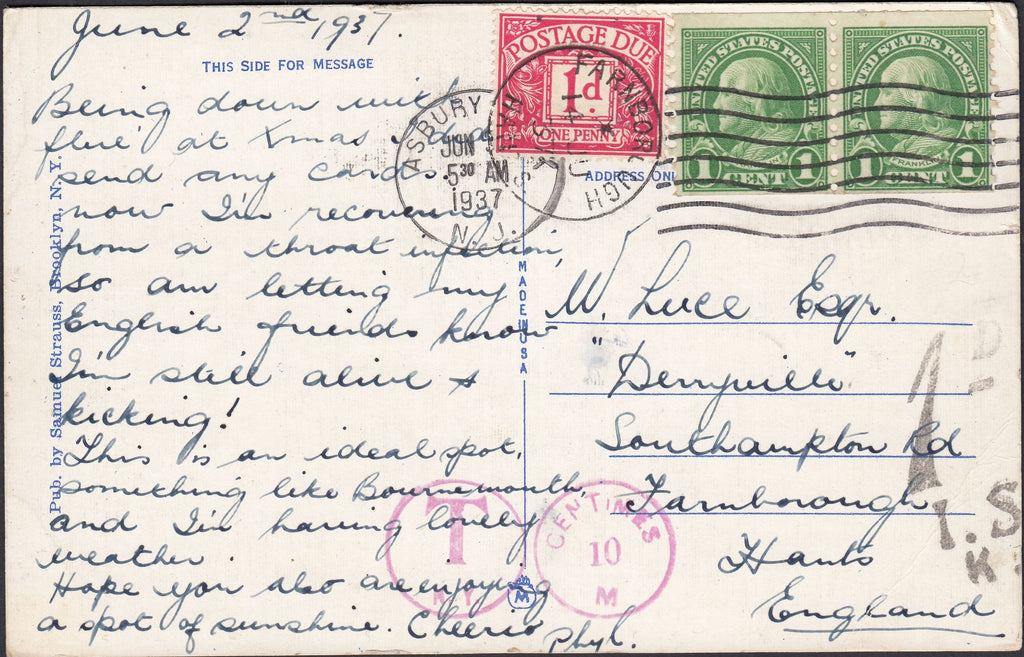 June 2nd 1937.
THIS SIDE FOR MESSAGE
Being down with
flu' at Xmas
send any cards.
now I'm recovering
from a throat infection,
so am letting my
English friends know
I'm still alive &
kicking!
This is an ideal spot,
something like Bournemouth,
and I'm having lovely
weather.
Hope you also are enjoying
a spot of sunshine. Cheerio Phyl.
Pub. by Samuel Strauss, Brooklyn, N. Y.
MADE IN USA
M
ASBURY
JUN
5 30 AM
1937
N. J.
POSTAGE DUE
1d
ONE PENNY
FARNBOROUGH
UNITED STATES POSTAGE
1 CENT 1
UNITED STATES POSTAGE
FRANKLIN
1 1
ADDRESS ONL
W. Luce Esqr.
"Derryville"
Southampton Rd
Farnborough
Hants
England
T
N.Y.
CENTIMES
10
M
1 D
I.S
K